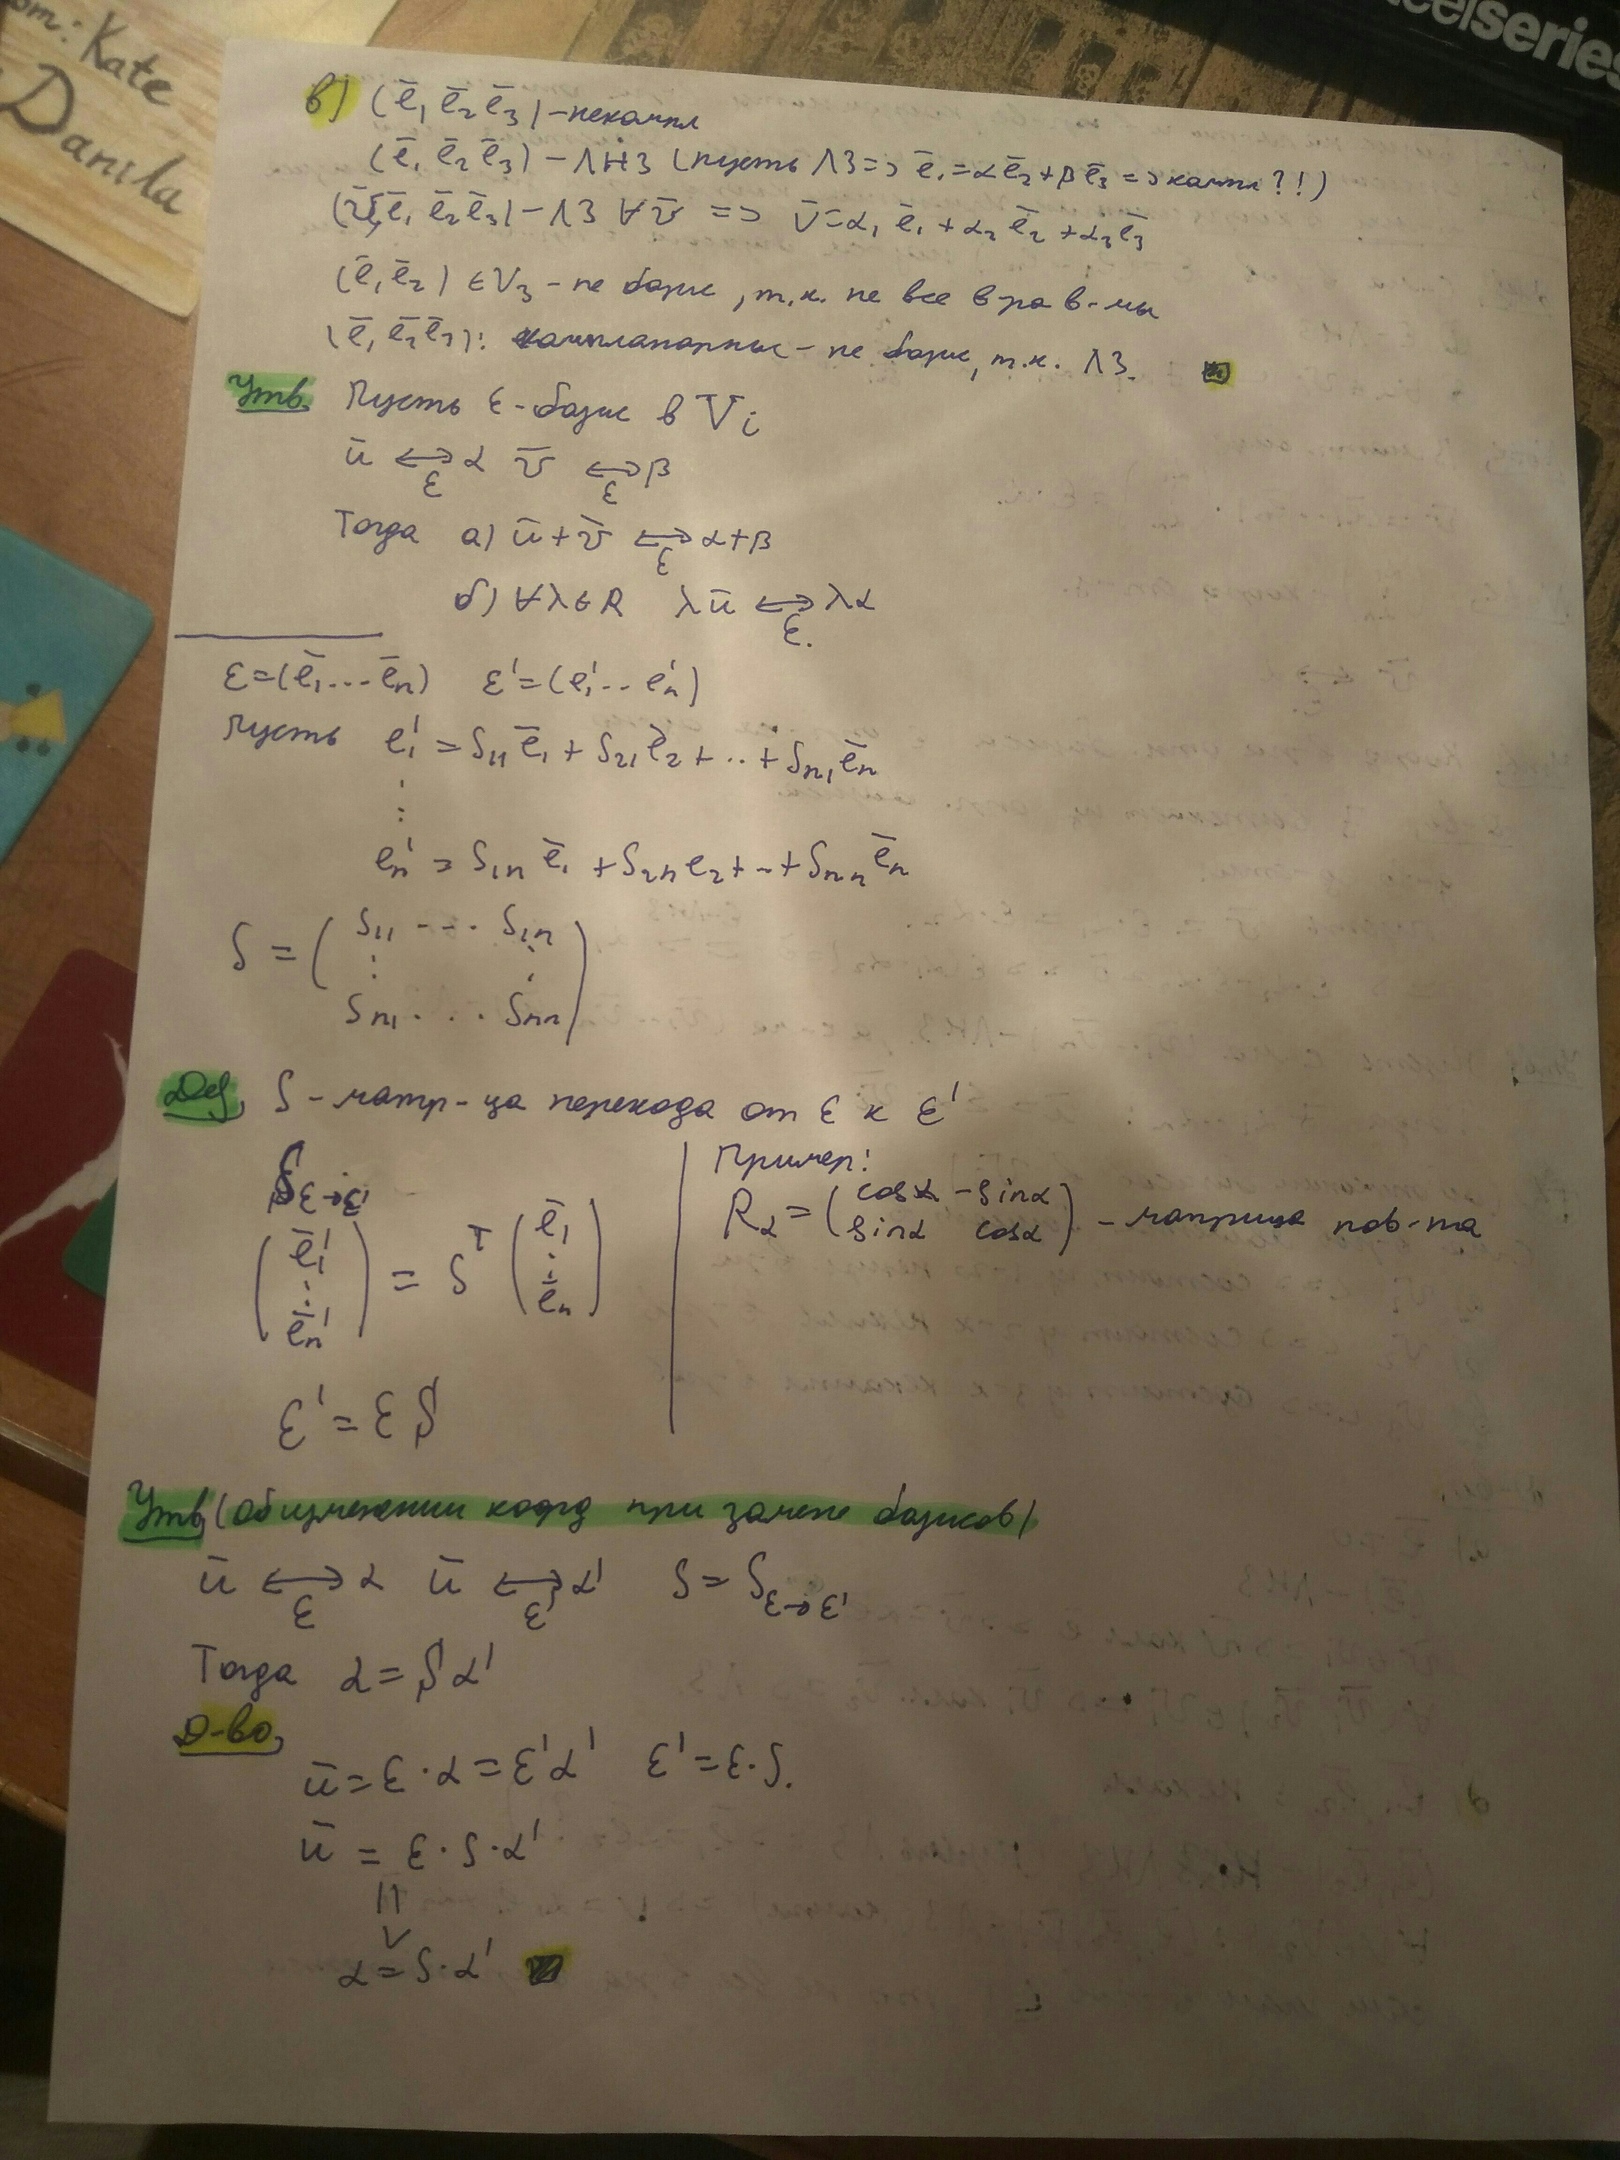 om: Kate
Danila
celseries
в) (ē₁ ē₂ ē₃) - некомпл
(ē₁ ē₂ ē₃) - ЛНЗ (пусть ЛЗ => ē₁ = αē₂ + βē₃ => компл ?!)
(v̄, ē₁ ē₂ ē₃) - ЛЗ ∀v̄ => v̄ = α₁ē₁ + α₂ē₂ + α₃ē₃
(ē₁ ē₂) ∈ V₃ - не базис, т.к. не все в-ра в-мы
(ē₁ ē₂ ē₃): компланарные - не базис, т.к. ЛЗ.
Утв. Пусть ε - базис в Vi
ū ⟷ α v̄ ⟷ β
ε ε
Тогда а) ū + v̄ ⟷ α + β
ε
б) ∀λ∈R λū ⟷ λα
ε.
ε = (ē₁ ... ēn) ε' = (e₁' .. en')
Пусть e₁' = S₁₁ē₁ + S₂₁ē₂ + .. + Sn₁ēn
⋮
en' = S₁nē₁ + S₂ne₂ + .. + Snnēn
S = ( S₁₁ ... S₁n
⋮ ⋮
Sn₁ ... Snn )
Def. S - матр-ца перехода от ε к ε'
Sε→ε'
( ē₁' ⋮ ēn' ) = Sᵀ ( ē₁ ⋮ ēn )
ε' = εS
Пример:
Rα = ( cosα -sinα
sinα cosα ) - матрица пов-та
Утв. (Об изменении коорд при замене базисов)
ū ⟷ α ū ⟷ α' S = Sε→ε'
ε ε'
Тогда α = Sα'
Д-во.
ū = ε·α = ε'α' ε' = ε·S.
ū = ε·S·α'
⇓
α = S·α'